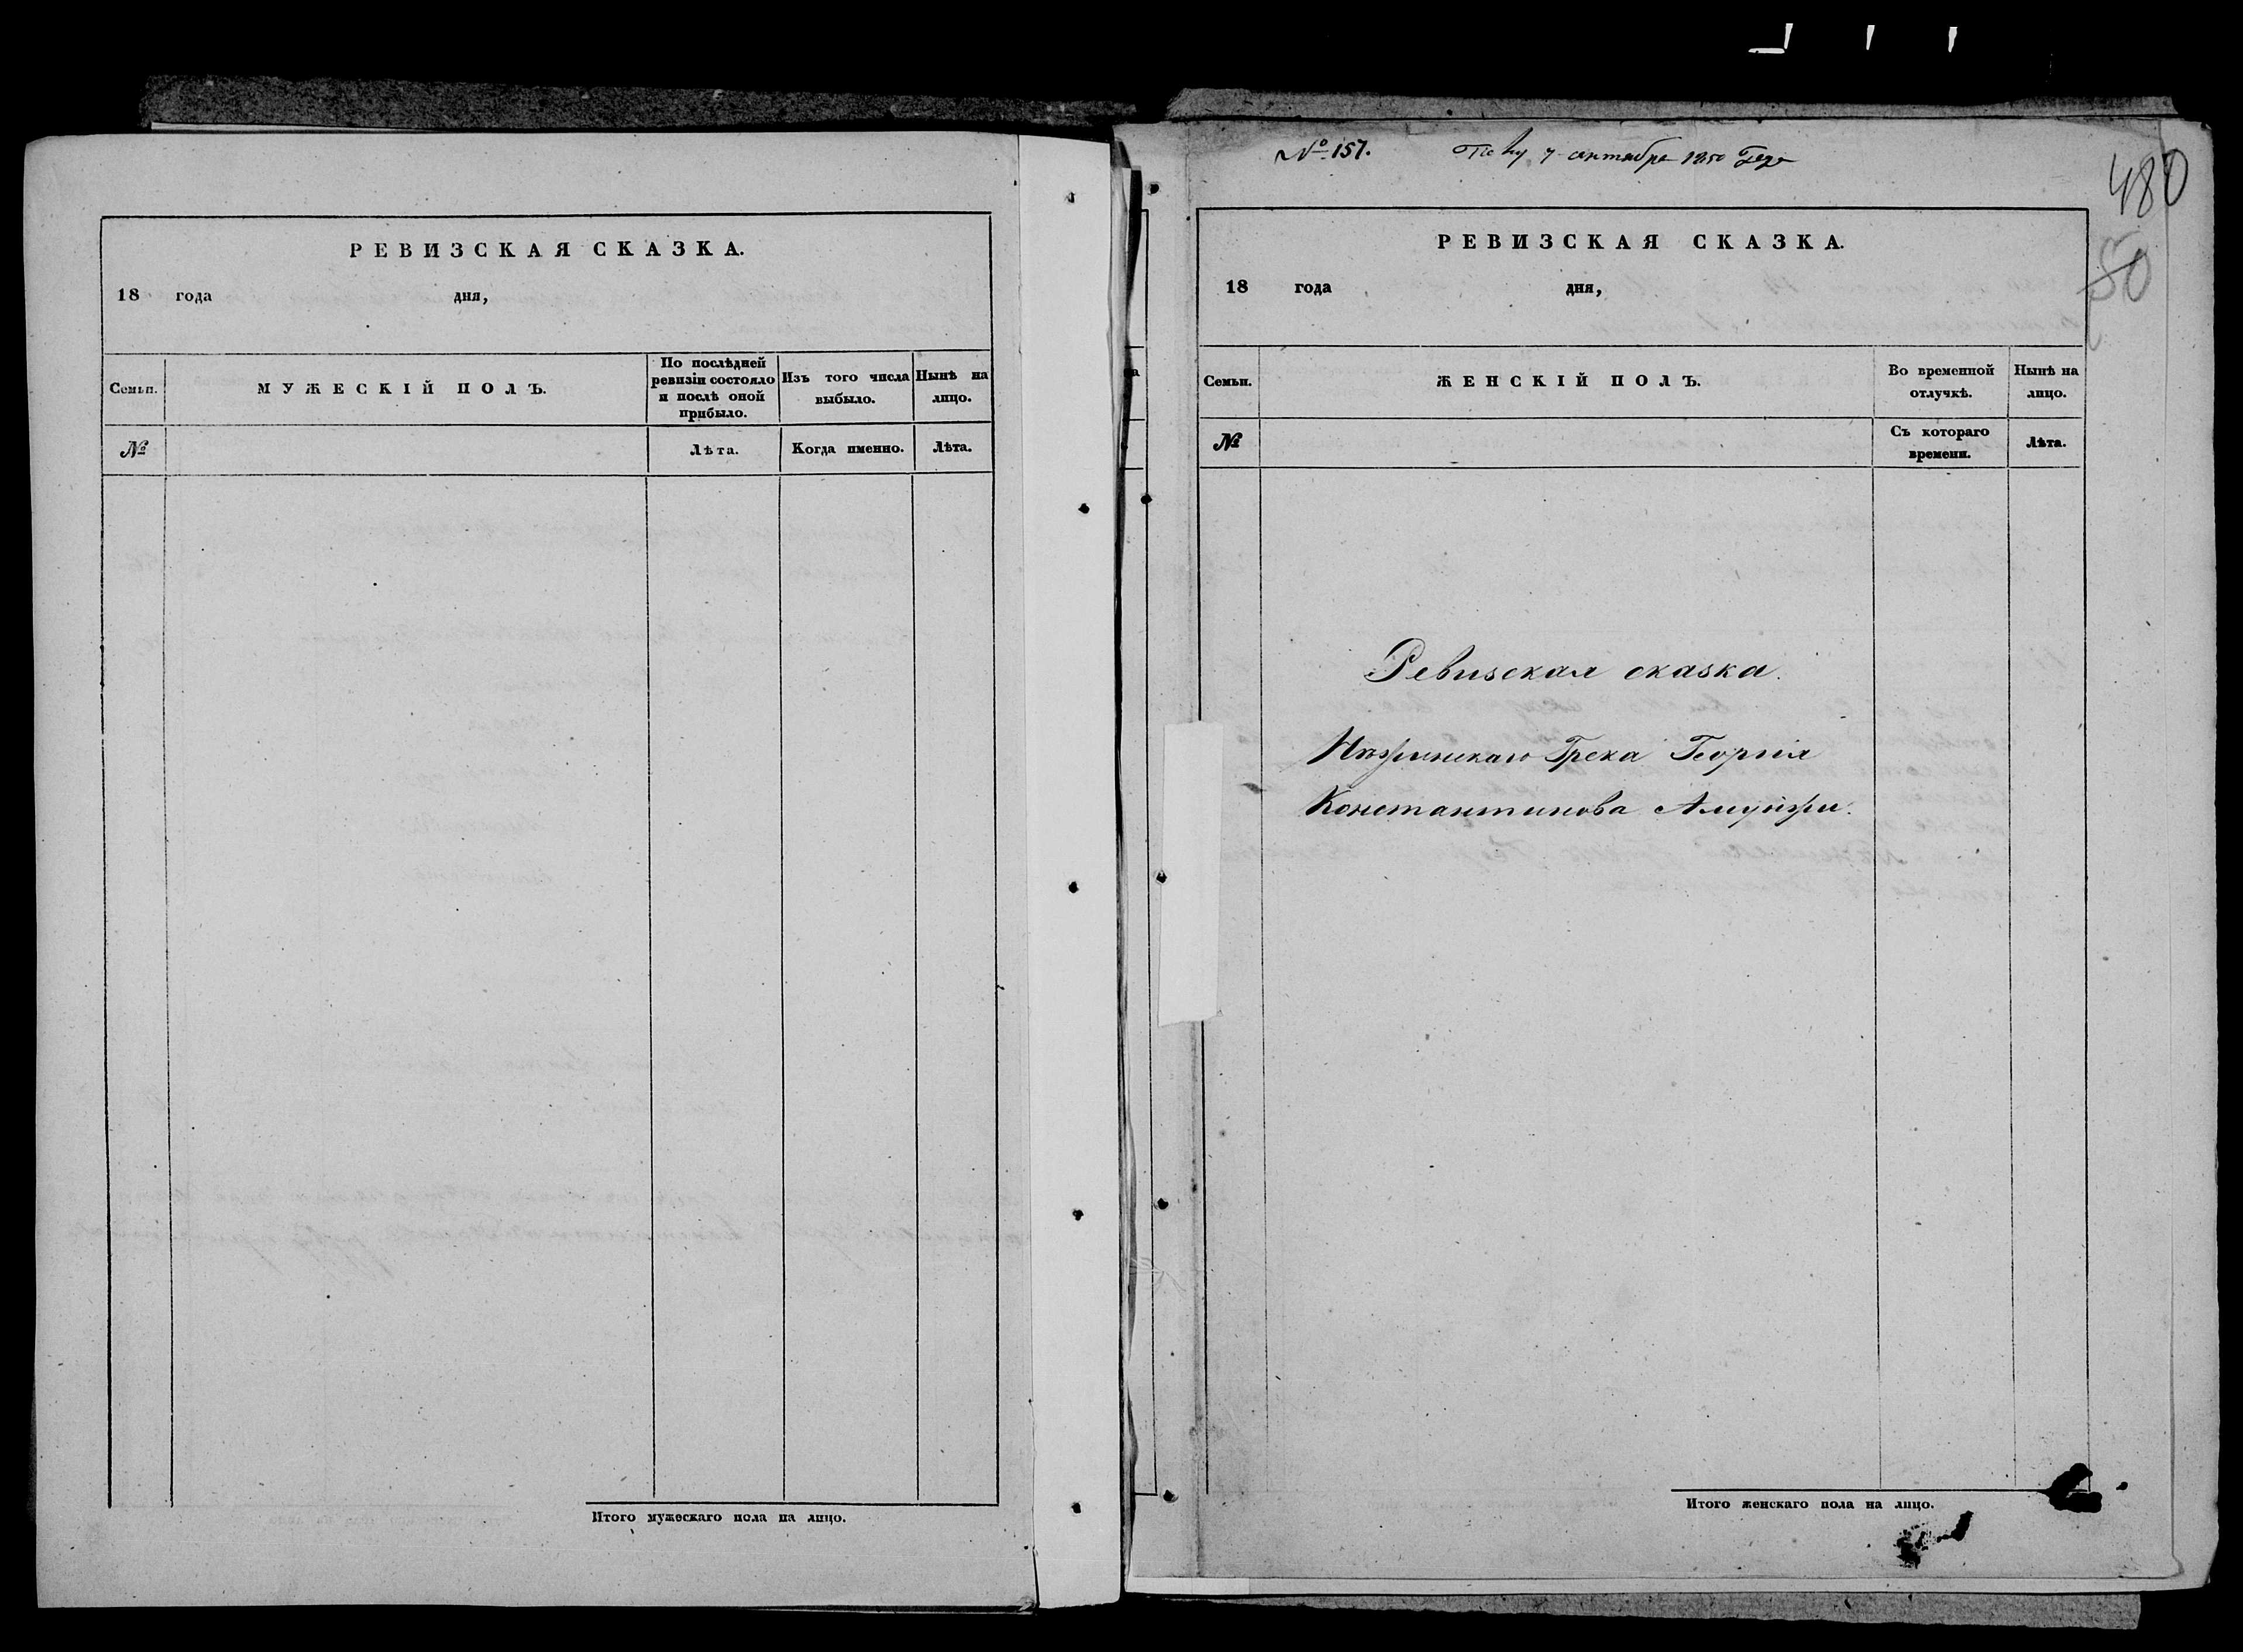 РЕВИЗСКАЯ СКАЗКА.
18 года дня,
Семьи.
МУЖЕСКІЙ ПОЛЪ.
По послѣдней ревизіи состояло и послѣ оной прибыло.
Изъ того числа выбыло.
Нынѣ на лицо.
№
Лѣта.
Когда именно.
Лѣта.
Итого мужескаго пола на лицо.
№ 157.
7 октября 1850 Года
480
50
РЕВИЗСКАЯ СКАЗКА.
18 года дня,
Семьи.
ЖЕНСКІЙ ПОЛЪ.
Во временной отлучкѣ.
Нынѣ на лицо.
№
Съ котораго времени.
Лѣта.
Ревизская сказка.
Грека Георгія
Константинова
Итого женскаго пола на лицо.